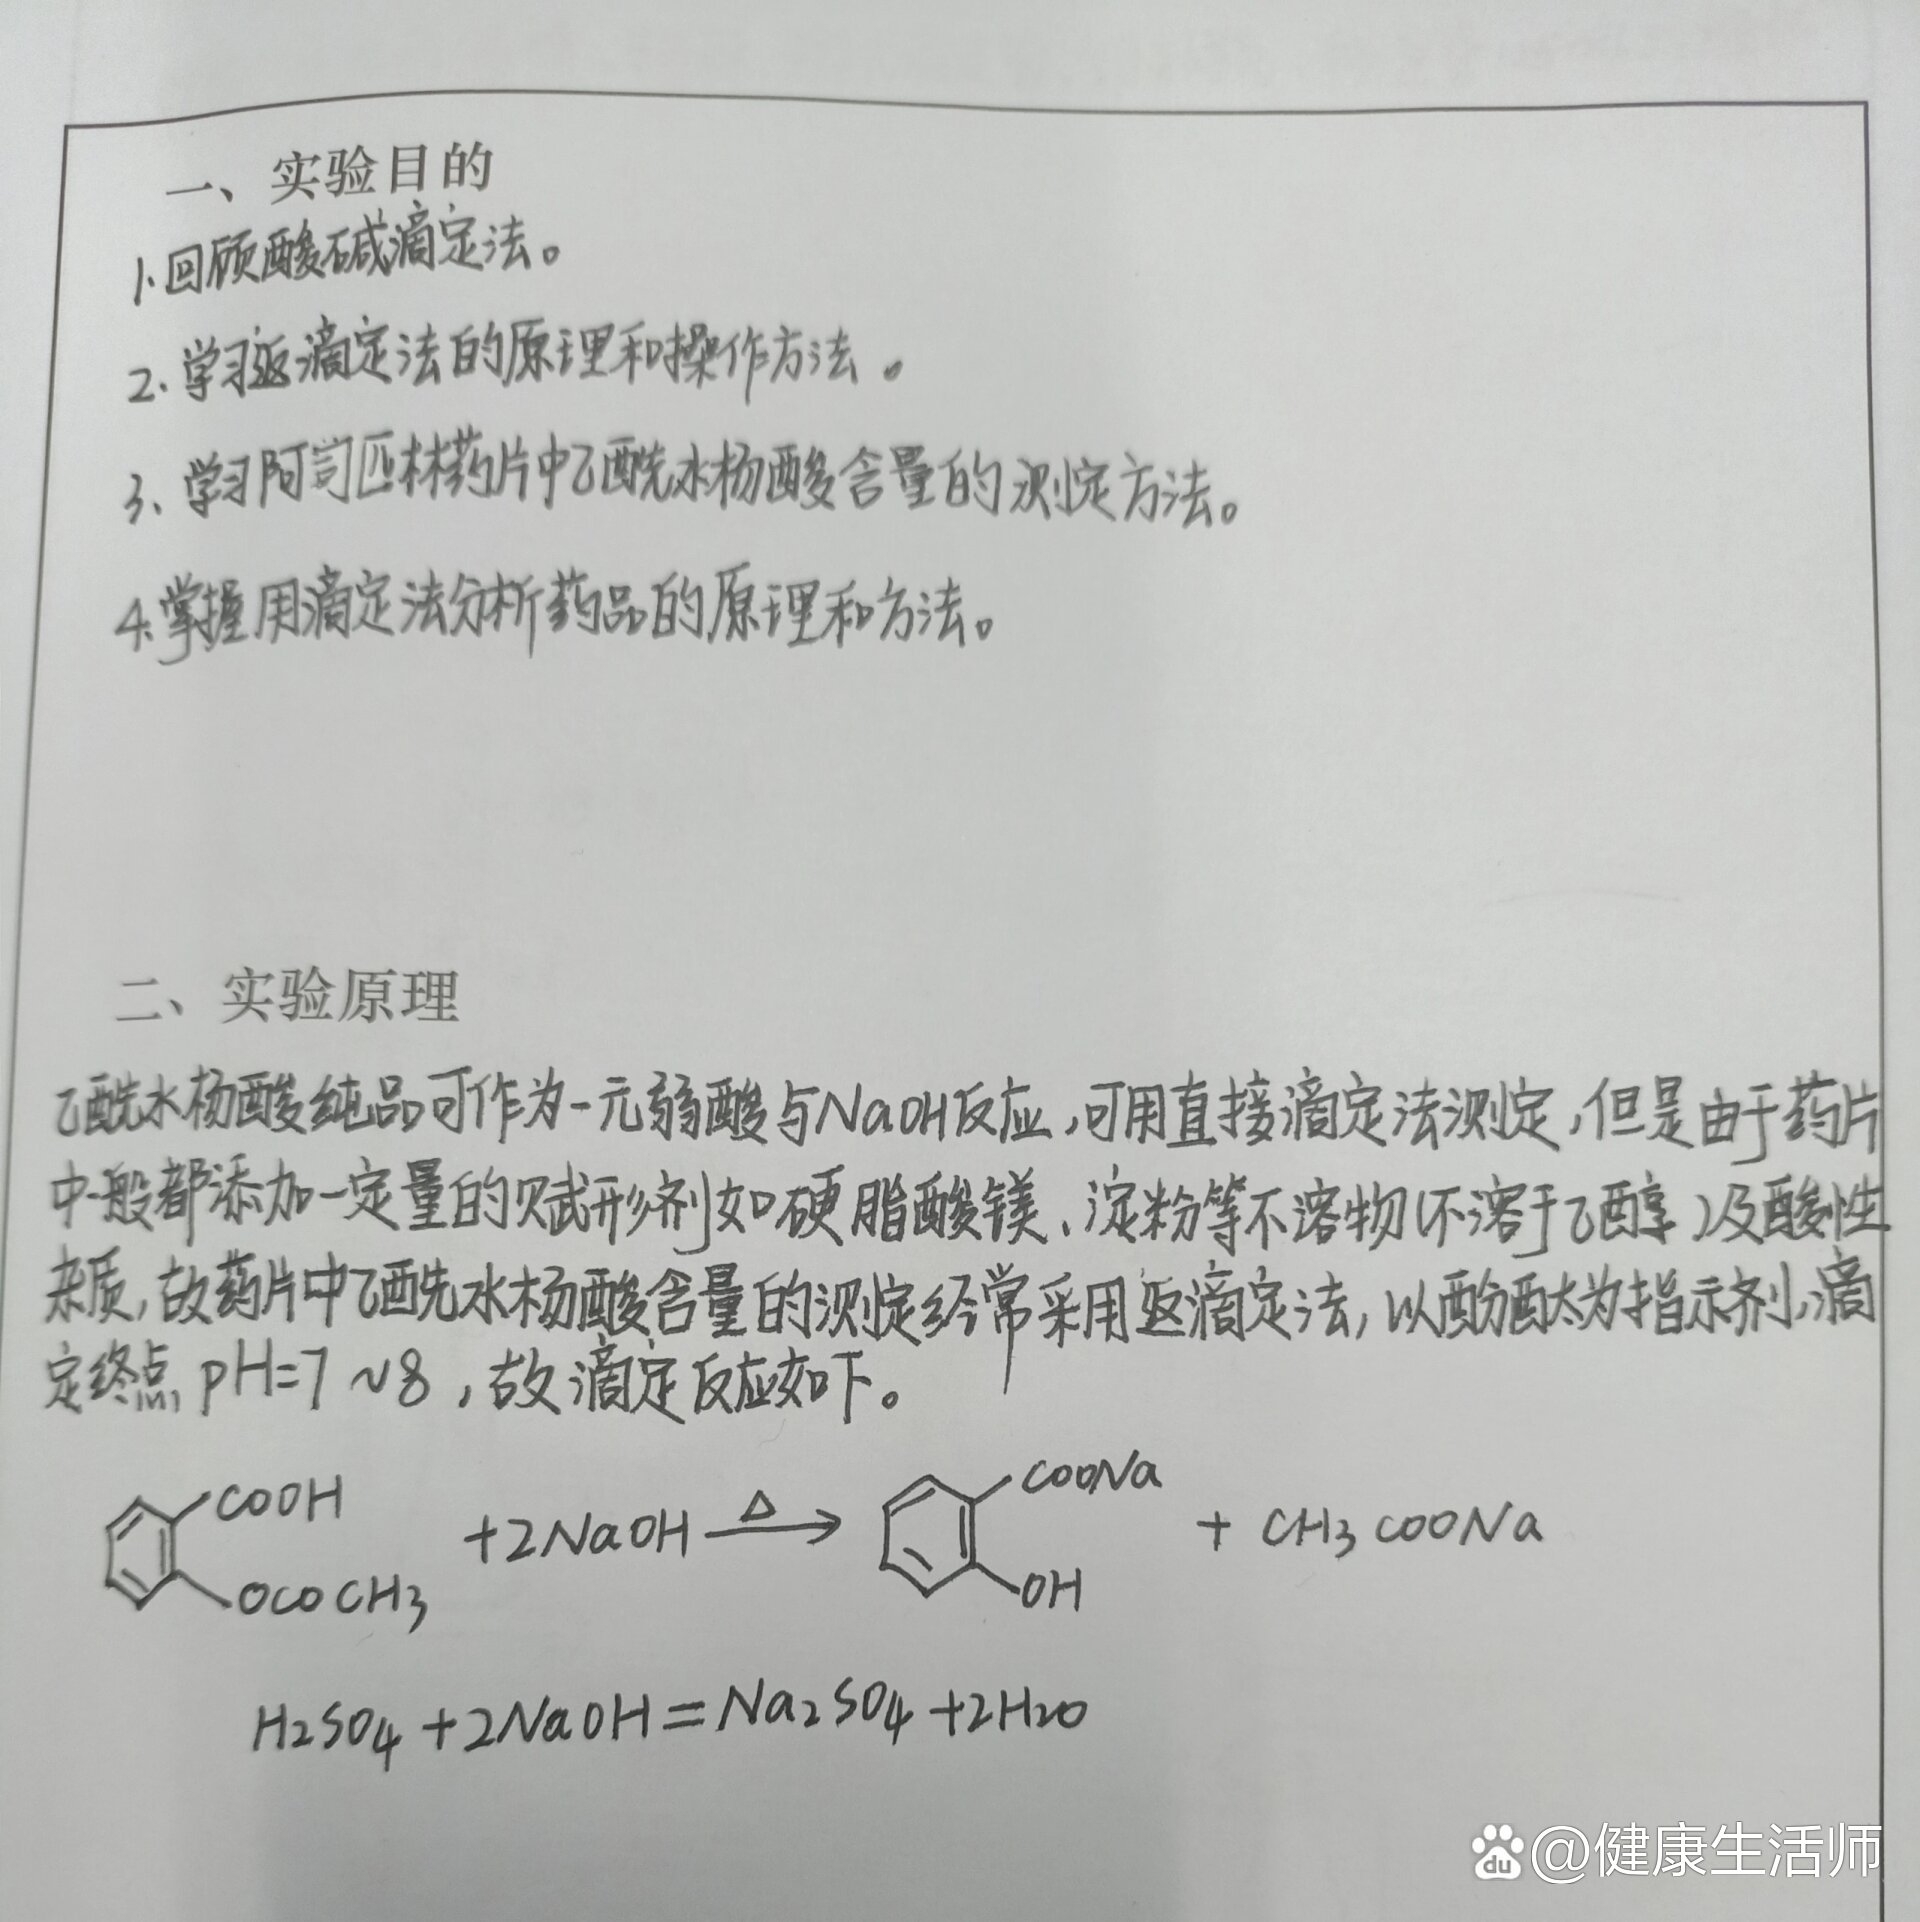 一、实验目的
1.回顾酸碱滴定法。
2.学习返滴定法的原理和操作方法。
3、学习阿司匹林药片中乙酰水杨酸含量的测定方法。
4.掌握用滴定法分析药品的原理和方法。
二、实验原理
乙酰水杨酸纯品可作为一元弱酸与NaOH反应,可用直接滴定法测定,但是由于药片
中一般都添加一定量的赋形剂如硬脂酸镁、淀粉等不溶物(不溶于乙醇)及酸性
杂质,故药片中乙酰水杨酸含量的测定经常采用返滴定法,以酚酞为指示剂,滴
定终点pH=7~8,故滴定反应如下。
COOH OCOCH3 +2NaOH △→ COONa OH + CH3COONa
H2SO4+2NaOH=Na2SO4+2H2O
du @健康生活师